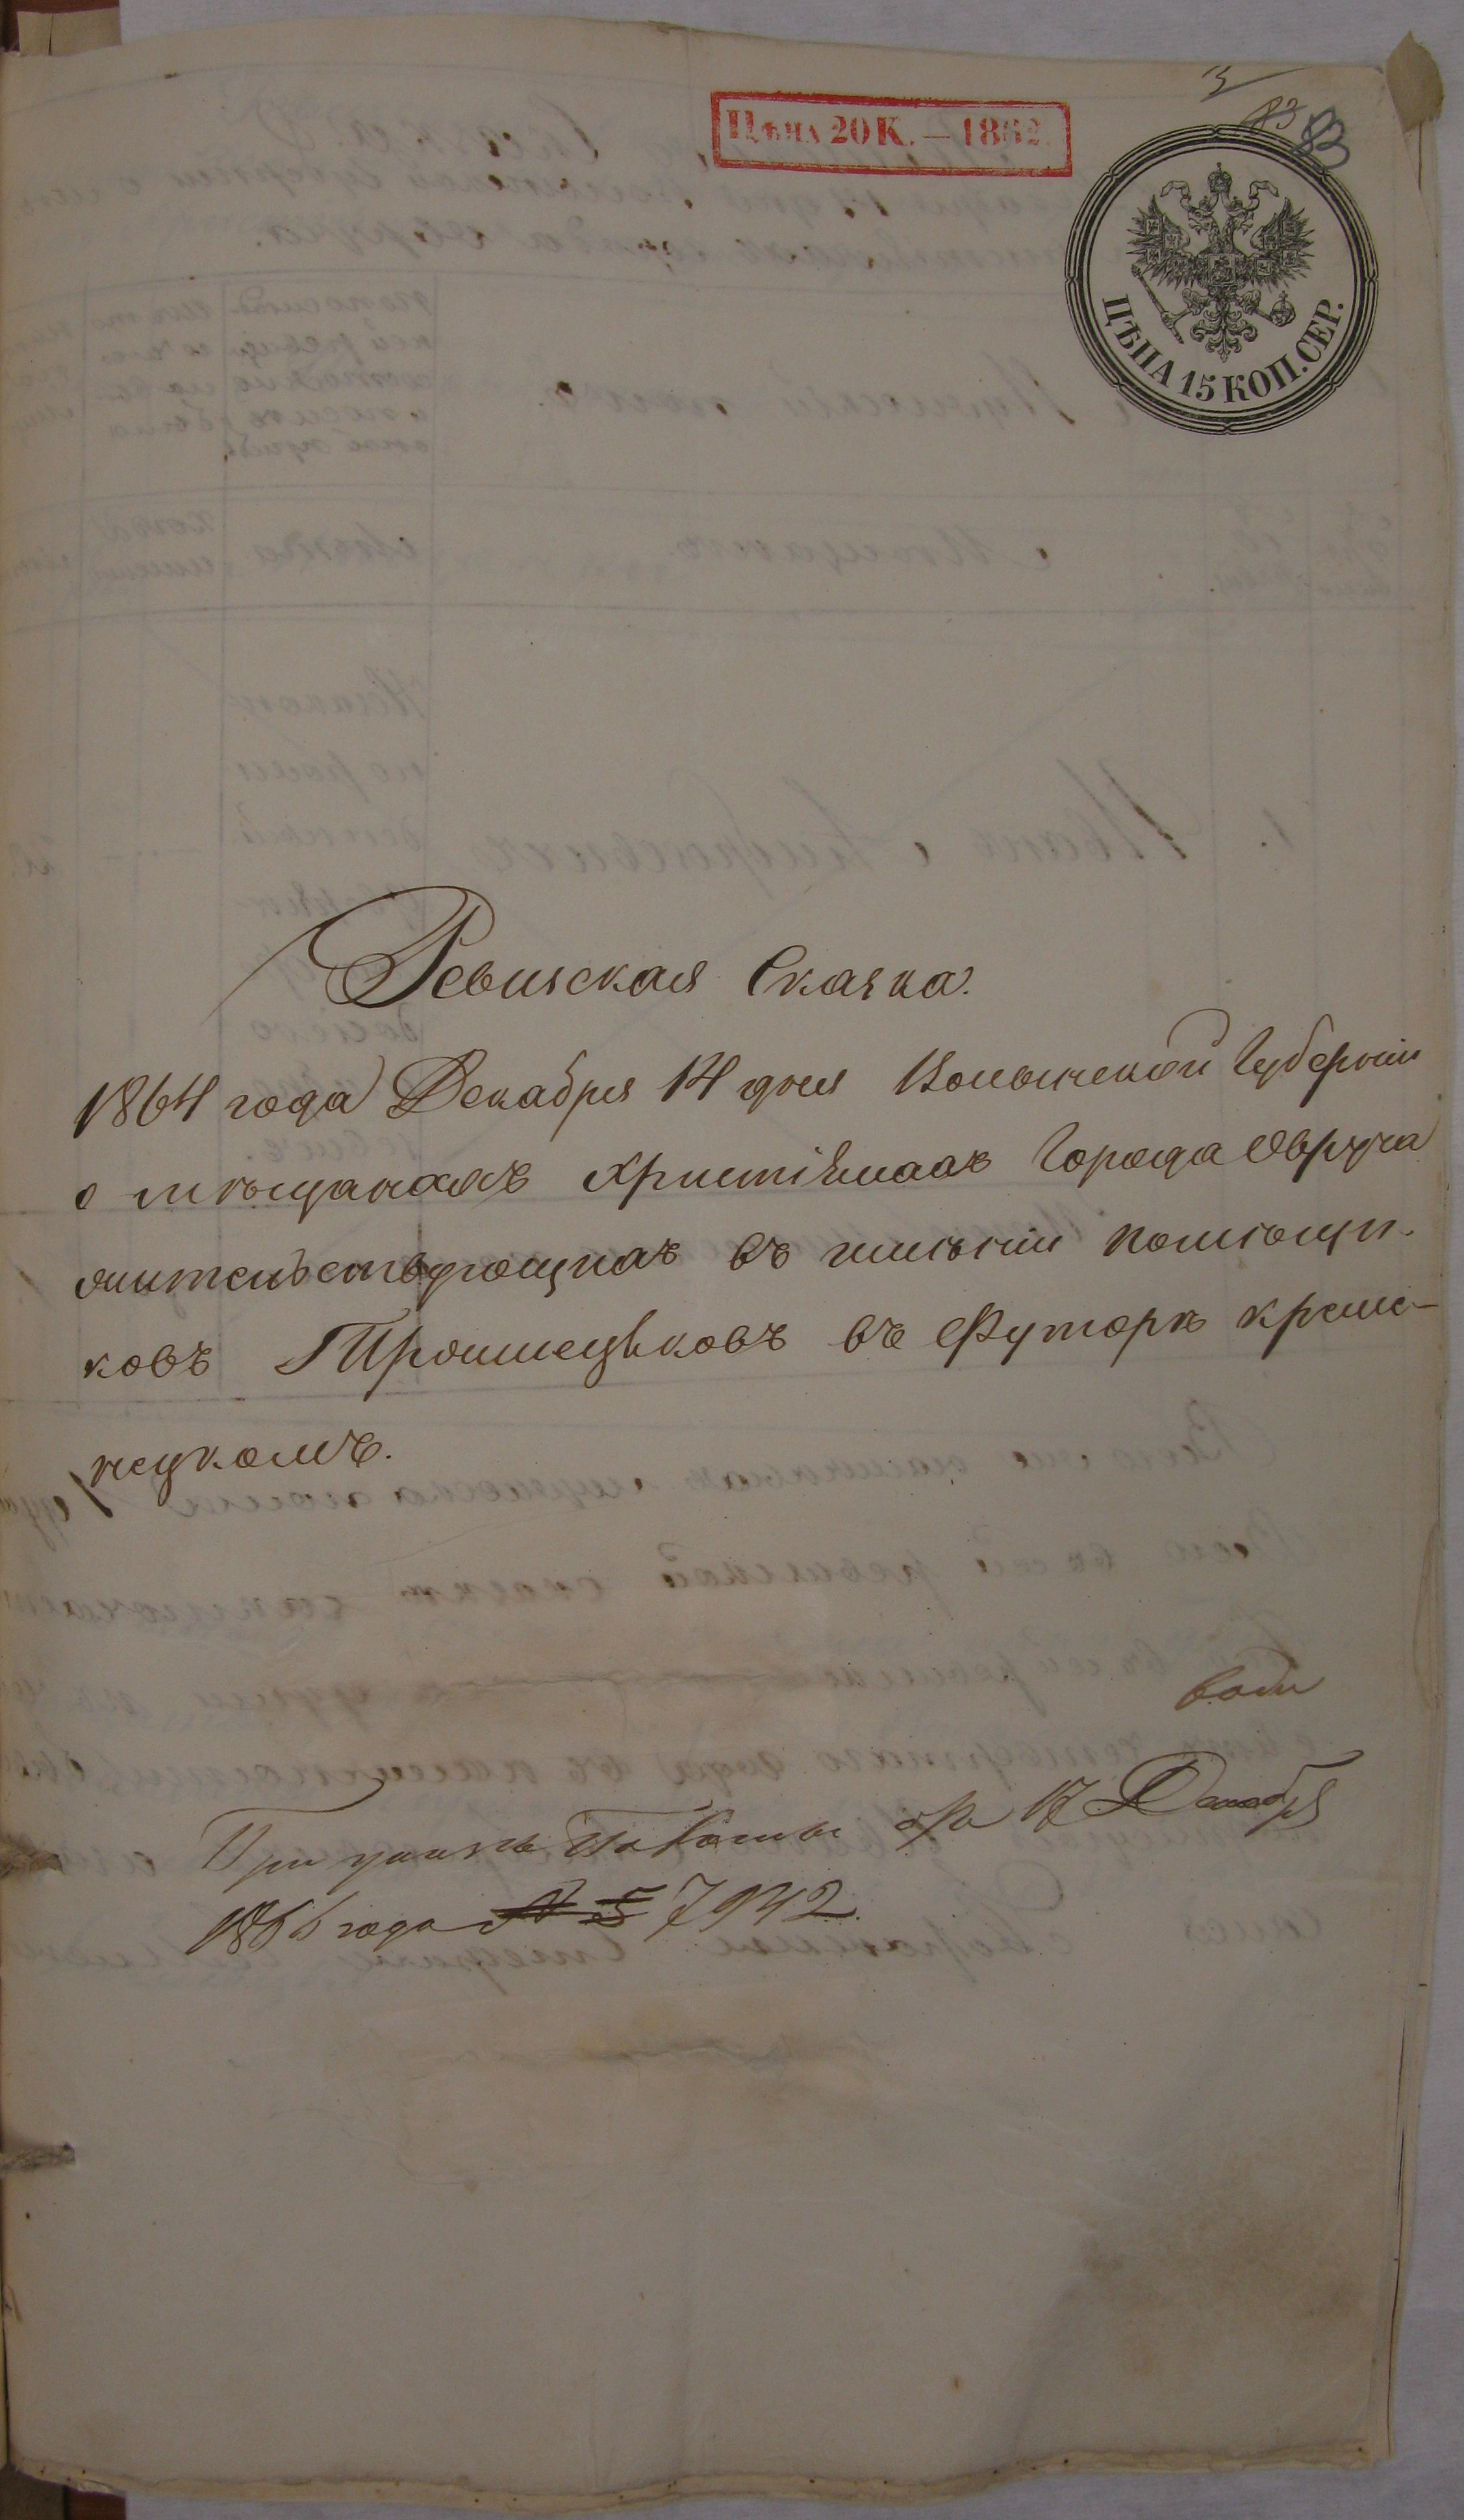 3
83
Цѣна 20 К. — 1862.
ЦѢНА 15 КОП. СЕР.
Ревизская Сказка.
1864 года Декабря 14 дня Волынской Губерніи
о мѣщанахъ Христіянахъ Города Овруча
жительствующихъ въ имѣніи помѣщи-
ковъ въ Футорѣ
При указѣ Палаты 17 Декабря
года № 7942